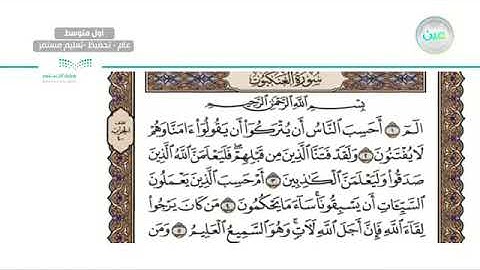 اول متوسط
عام - تحفيظ - تعليم مستمر
عين
سُورَةُ العَنكَبُوتِ
بِسْمِ اللَّهِ الرَّحْمَٰنِ الرَّحِيمِ
الٓمٓ ١ أَحَسِبَ النَّاسُ أَن يُتْرَكُوٓا۟ أَن يَقُولُوٓا۟ ءَامَنَّا وَهُمْ
لَا يُفْتَنُونَ ٢ وَلَقَدْ فَتَنَّا الَّذِينَ مِن قَبْلِهِمْ ۖ فَلَيَعْلَمَنَّ اللَّهُ الَّذِينَ
صَدَقُوا۟ وَلَيَعْلَمَنَّ الْكَٰذِبِينَ ٣ أَمْ حَسِبَ الَّذِينَ يَعْمَلُونَ
السَّيِّـَٔاتِ أَن يَسْبِقُونَا ۚ سَآءَ مَا يَحْكُمُونَ ٤ مَن كَانَ يَرْجُوا۟
لِقَآءَ اللَّهِ فَإِنَّ أَجَلَ اللَّهِ لَـَٔاتٍ ۚ وَهُوَ السَّمِيعُ الْعَلِيمُ ٥ وَمَن